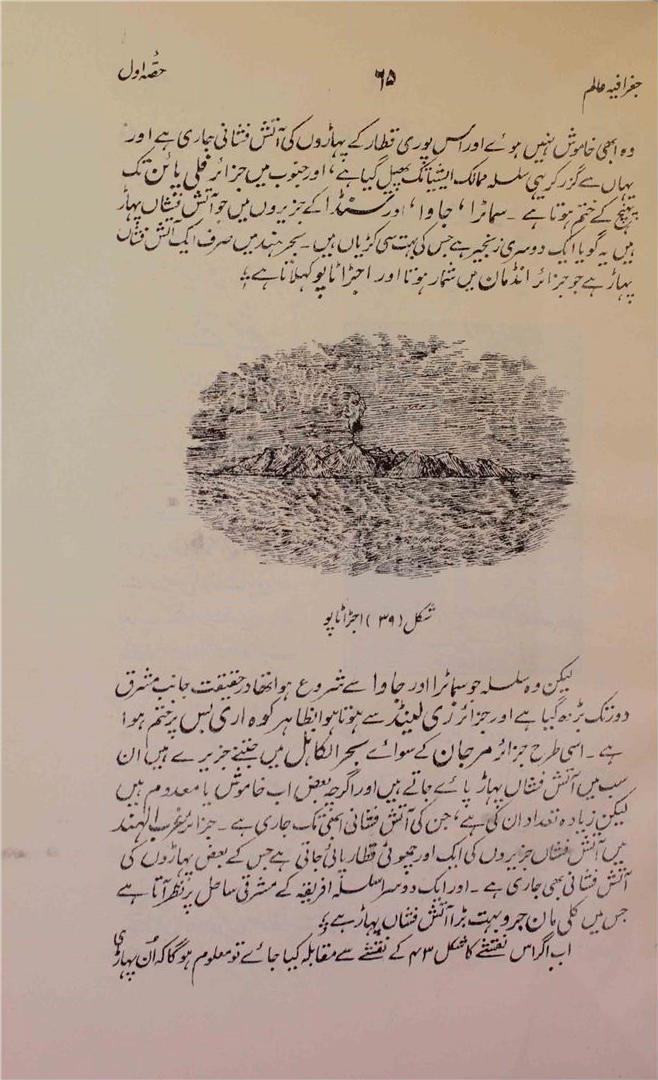 جغرافیہ عالم
۶۵
حصّہ اول
وہ ابھی خاموش نہیں ہوئے اور اس پوری قطار کے پہاڑوں کی آتش فشانی جاری ہے اور
یہاں سے گزر کر یہی سلسلہ ممالک ایشیا تک پھیل گیا ہے، اور جنوب میں جزائر فلی پائن تک
پہنچ کے ختم ہوتا ہے ۔ سماٹرا، جاوا، اور سنڈا کے جزیروں میں جو آتش فشاں پہاڑ
ہیں یہ گویا ایک دوسری زنجیر ہے جس کی بہت سی کڑیاں ہیں ۔ بحر ہند میں صرف ایک آتش فشاں
پہاڑ ہے جو جزائر انڈمان میں شمار ہوتا اور اجڑا ٹاپو کہلاتا ہے ؛
شکل (۳۹) اجڑا ٹاپو
لیکن وہ سلسلہ جو سماٹرا اور جاوا سے شروع ہوا تھا درحقیقت جانب مشرق
دور تک بڑھ گیا ہے اور جزائر زی لینڈ سے ہوتا ہوا بظاہر کوہ اری بس پر ختم ہوا
ہے ۔ اسی طرح جزائر مرجان کے سوائے بحر الکاہل میں جتنے جزیرے ہیں ان
سب میں آتش فشاں پہاڑ پائے جاتے ہیں اور اگرچہ بعض اب خاموش یا معدوم ہیں
لیکن زیادہ تعداد ان کی ہے، جن کی آتش فشانی ابھی تک جاری ہے ۔ جزائر غرب الہند
میں آتش فشاں جزیروں کی ایک اور چھوٹی قطار پائی جاتی ہے جس کے بعض پہاڑوں کی
آتش فشانی بھی جاری ہے ۔ اور ایک دوسرا سلسلہ افریقہ کے مشرقی ساحل پر نظر آتا ہے
جس میں کلی مان جرو بہت بڑا آتش فشاں پہاڑ ہے ؛
اب اگر اس نقشے کا شکل ۴۳ کے نقشے سے مقابلہ کیا جائے تو معلوم ہوگا کہ اُن پہاڑی